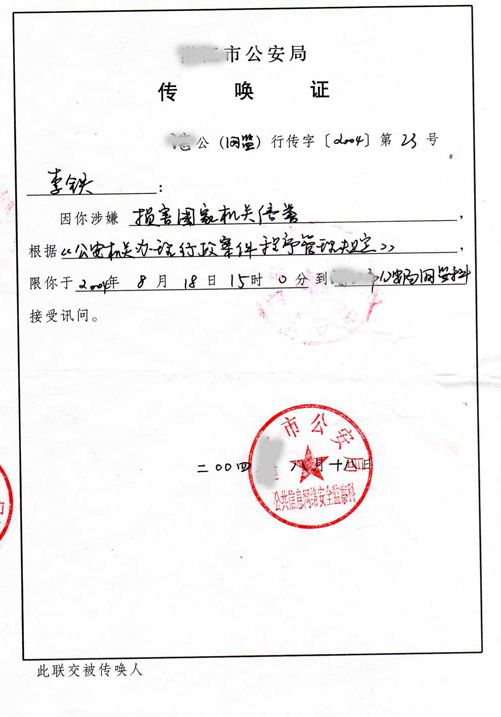 市公安局
传唤证
公(网监)行传字〔2004〕第23号
李铁:
因你涉嫌 损害国家机关信誉,
根据《公安机关办理行政案件程序管理规定》
限你于2004年8月18日15时0分到 市公安局网监科
接受讯问。
二00四 八月十八日
市公安局
公共信息网络安全监察科
此联交被传唤人